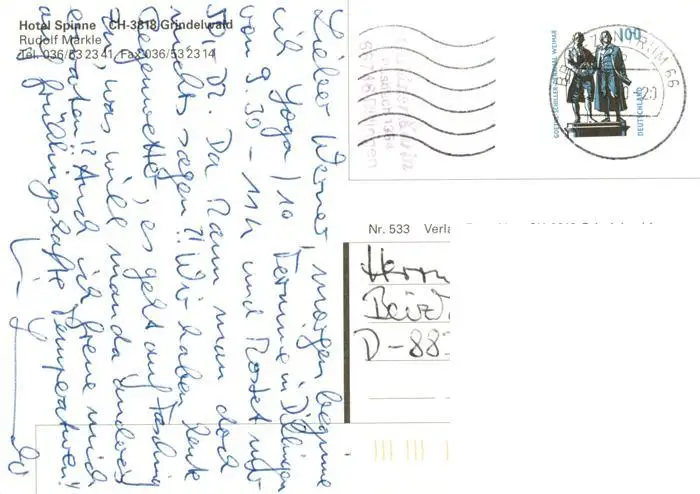 Hotel Spinne CH-3818 Grindelwald
Rudolf Märkle
Tel. 036/53 23 41, Fax 036/53 23 14
Lieber Werner, morgen beginne
ich Yoga / 10 Termine in Dillingen
von 9.30 - 11 h und kostet nur
Da kann man doch
nichts sagen?! Wir haben heute
Regenwetter, es geht auf Fasching
zu, was will man da anderes
erwarten!? Auch ich freue mich
auf frühlingshafte Temperaturen!!
100
GOETHE-SCHILLER-DENKMAL WEIMAR
DEUTSCHLAND
BRIEFZENTRUM 66
Nr. 533 Verla
Herrn
D-88